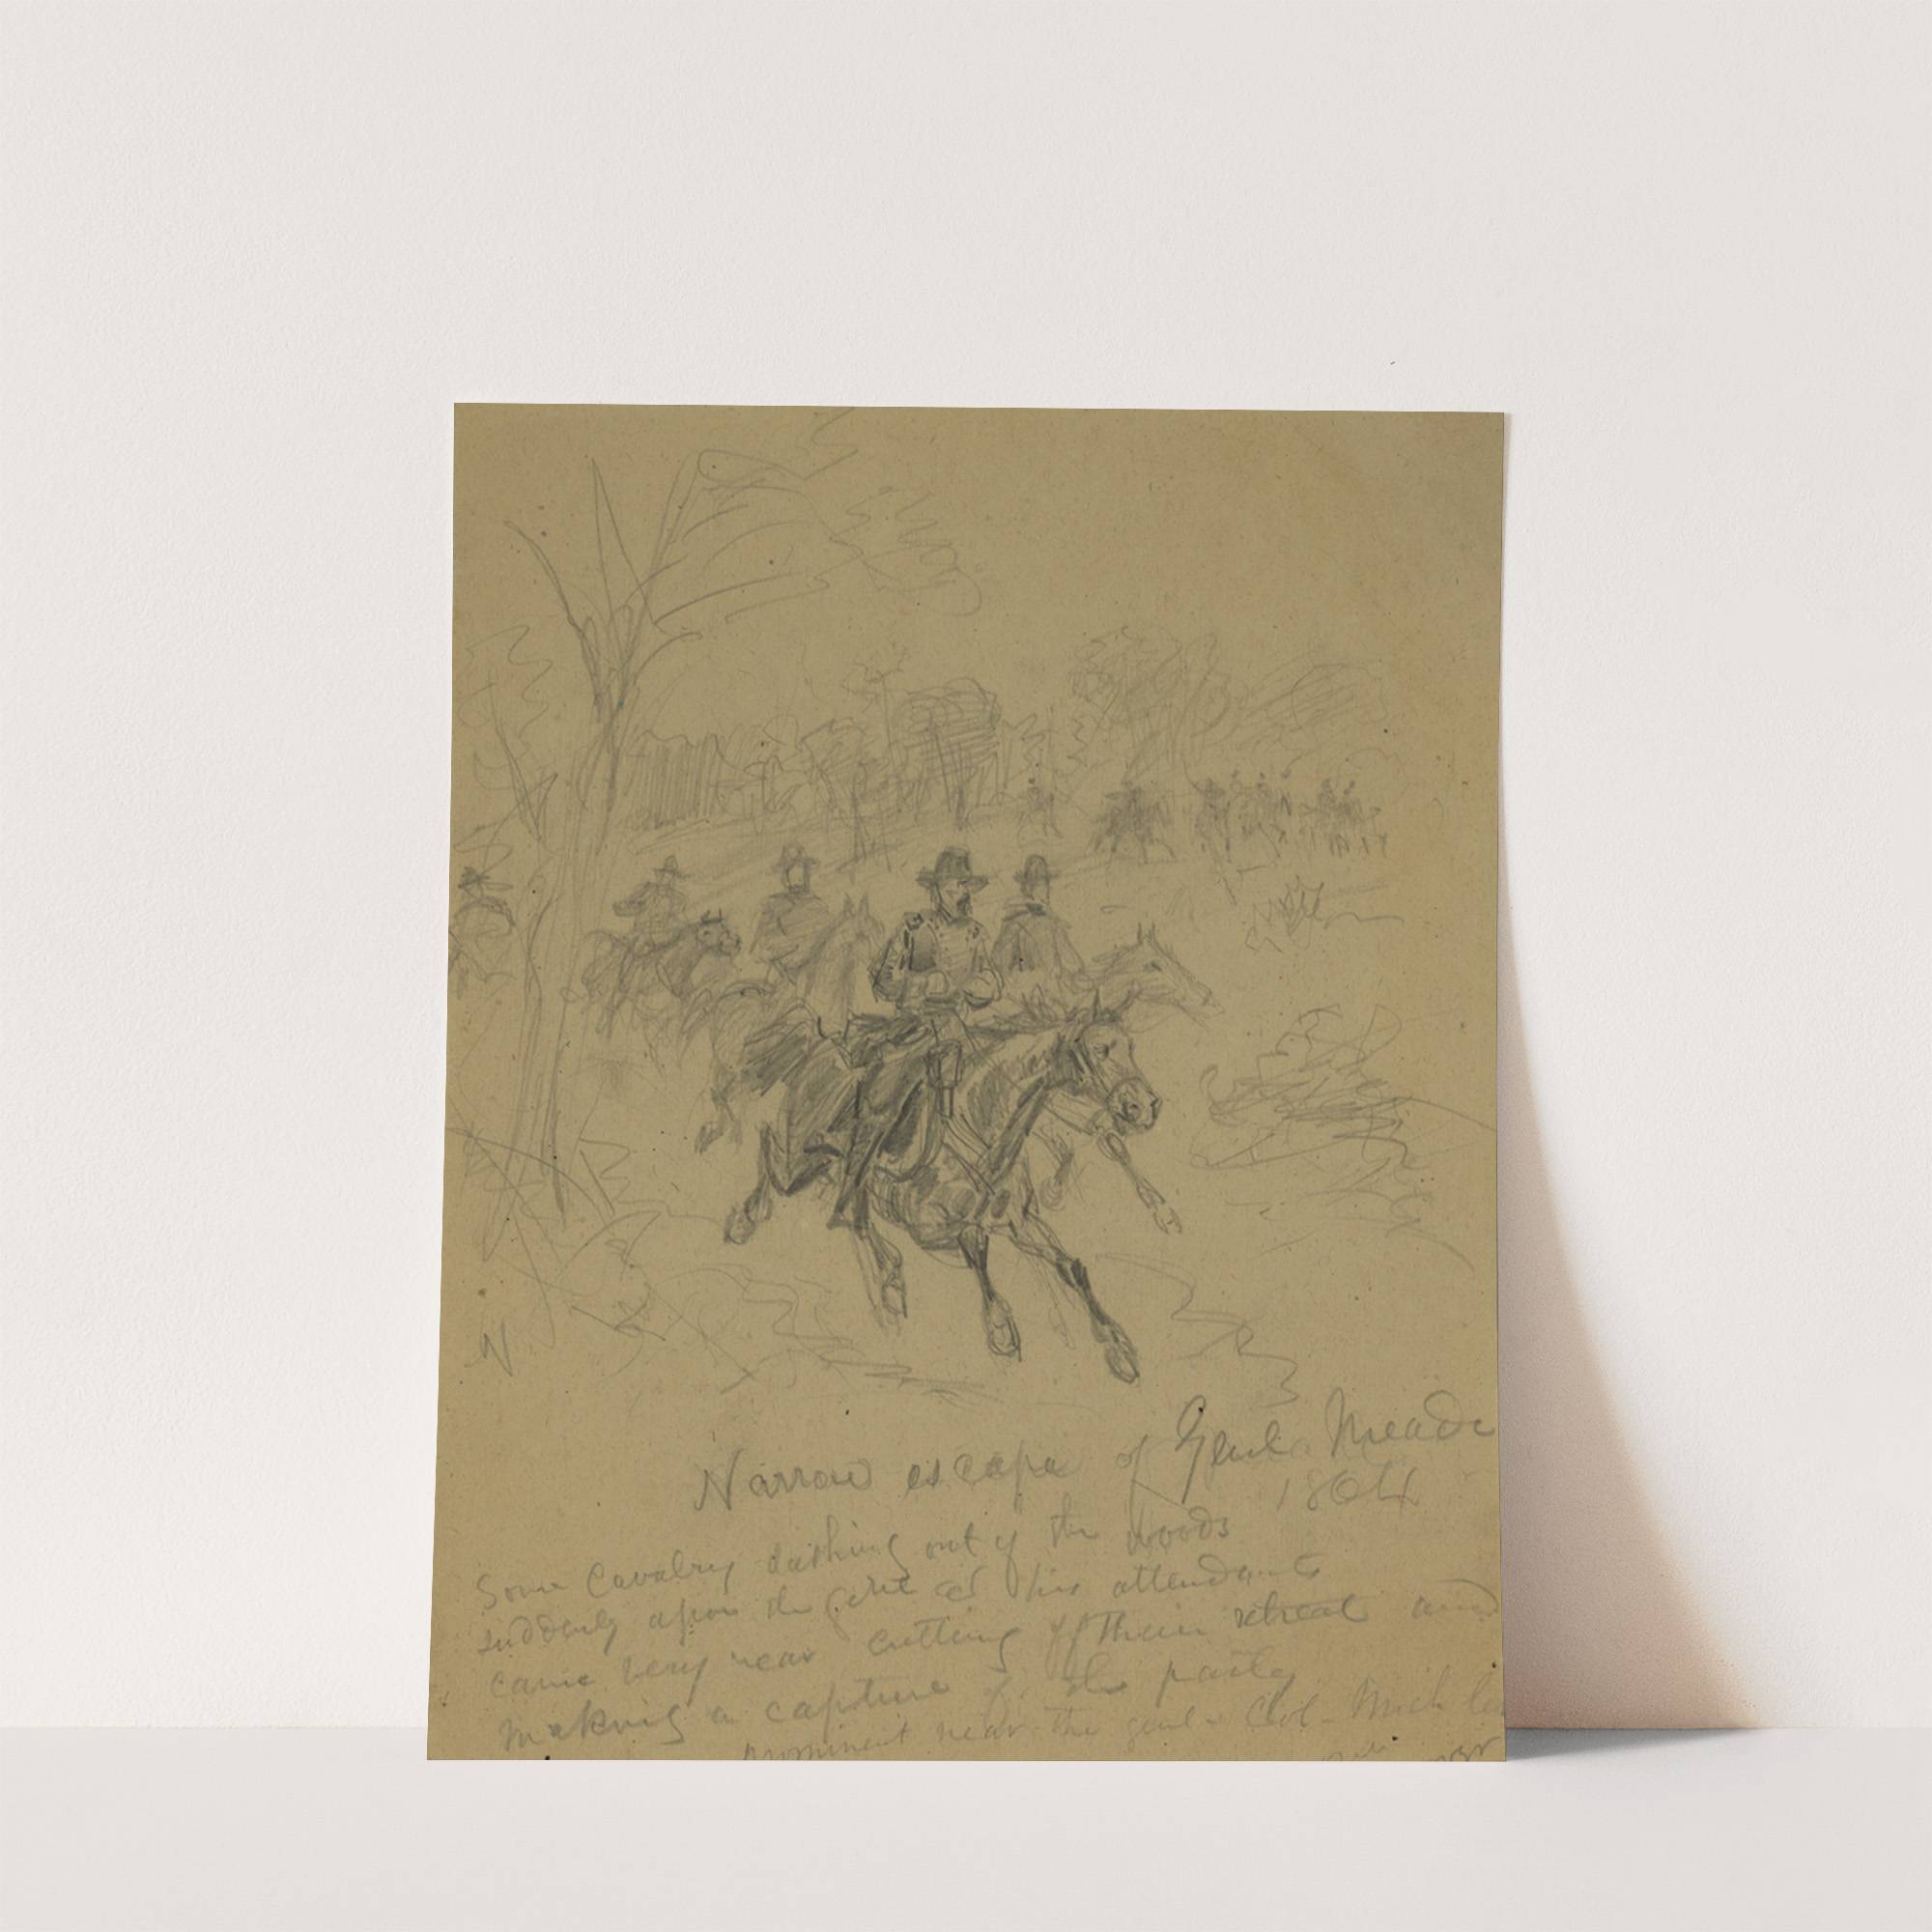 N
Narrow escape of Genl. Meade
1864
Some Cavalry dashing out of the woods
suddenly upon the Genl & his attendants
came very near cutting off their retreat and
making a capture of the party
prominent near the genl - Col - Mich